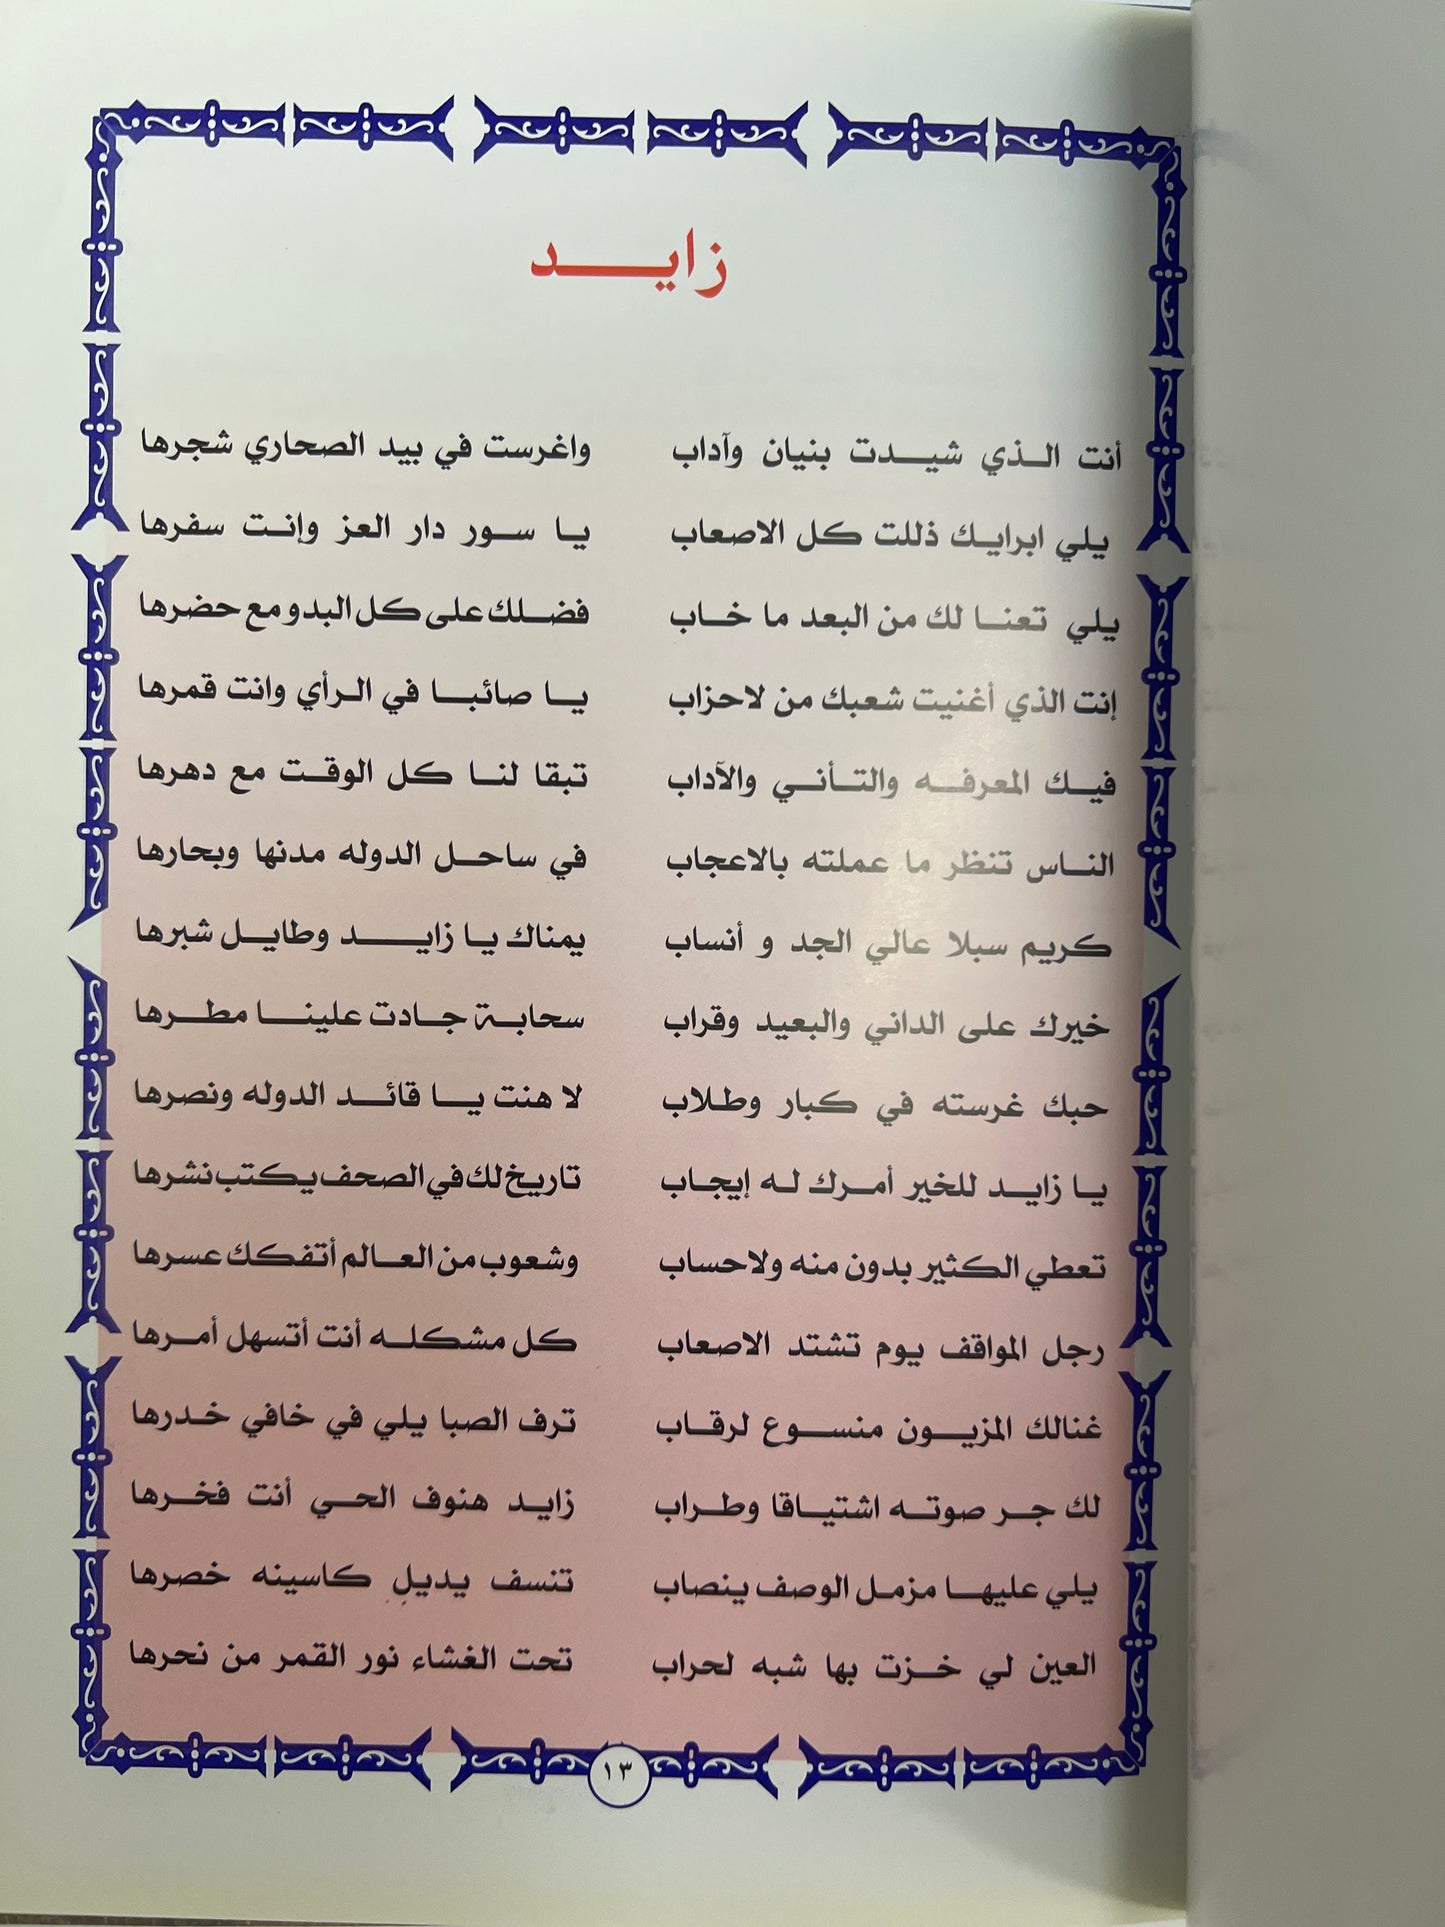 زايد
أنت الذي شيدت بنيان وآداب واغرست في بيد الصحاري شجرها
يلي ابرايك ذللت كل الاصعاب يا سور دار العز وإنت سفرها
يلي تعنا لك من البعد ما خاب فضلك على كل البدو مع حضرها
إنت الذي أغنيت شعبك من لاحزاب يا صائبا في الرأي وانت قمرها
فيك المعرفه والتأني والآداب تبقا لنا كل الوقت مع دهرها
الناس تنظر ما عملته بالاعجاب في ساحل الدوله مدنها وبحارها
كريم سبلا عالي الجد و أنساب يمناك يا زايد وطايل شبرها
خيرك على الداني والبعيد وقراب سحابة جادت علينا مطرها
حبك غرسته في كبار وطلاب لا هنت يا قائد الدوله ونصرها
يا زايد للخير أمرك له إيجاب تاريخ لك في الصحف يكتب نشرها
تعطي الكثير بدون منه ولاحساب وشعوب من العالم أتفكك عسرها
رجل المواقف يوم تشتد الاصعاب كل مشكله أنت أتسهل أمرها
غنالك المزيون منسوع لرقاب ترف الصبا يلي في خافي خدرها
لك جر صوته اشتياقا وطراب زايد هنوف الحي أنت فخرها
يلي عليها مزمل الوصف ينصاب تنسف يديلٍ كاسينه خصرها
العين لي خزت بها شبه لحراب تحت الغشاء نور القمر من نحرها
١٣